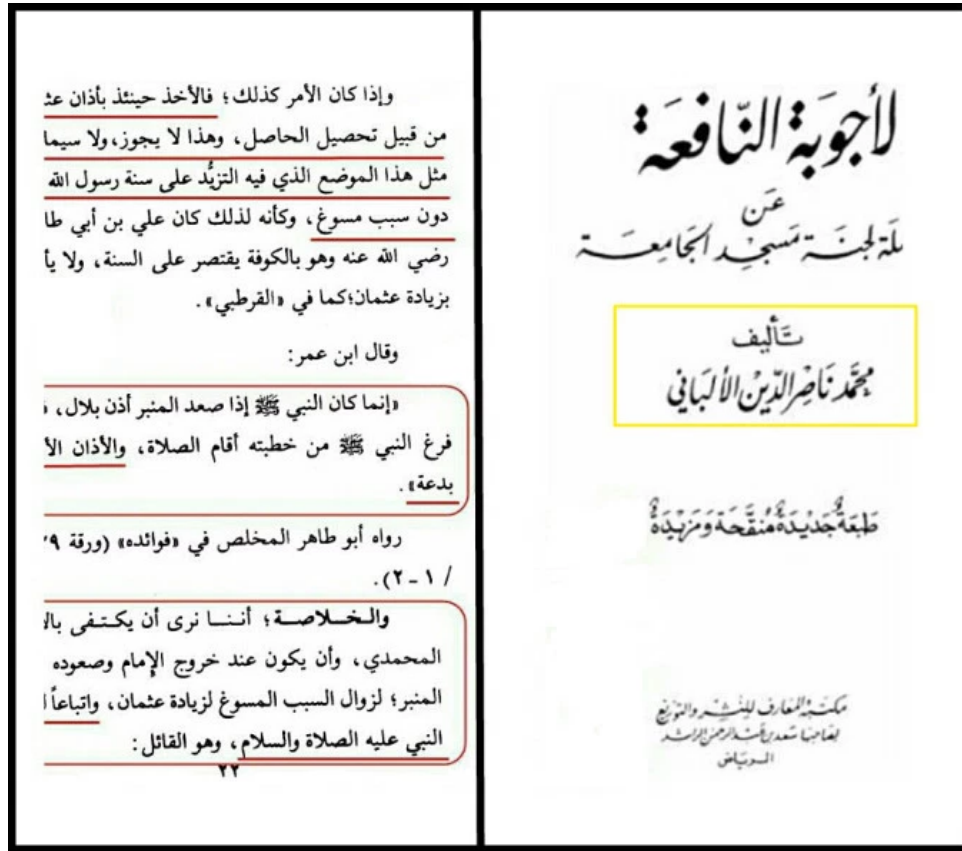 لأجوبة النّافعَة
عَن
ئلة لجنَة مَسجِد الجَامِعَة
تَأليف
محمّد نَاصِر الدّين الألبَاني
طبعَة جَديدَة مُنقَّحَة وَمَزيدَة
مكتبة المعارف للنشر والتوزيع
لصَاحبهَا سَعد بن عَبد الرحمن الراشد
الريَاض
وإذا كان الأمر كذلك؛ فالأخذ حينئذ بأذان عث
من قبيل تحصيل الحاصل، وهذا لا يجوز، ولا سيما
مثل هذا الموضع الذي فيه التزيُّد على سنة رسول الله
دون سبب مسوغ، وكأنه لذلك كان علي بن أبي طا
رضي الله عنه وهو بالكوفة يقتصر على السنة، ولا يأ
بزيادة عثمان؛ كما في «القرطبي».
وقال ابن عمر:
«إنما كان النبي ﷺ إذا صعد المنبر أذن بلال،
فرغ النبي ﷺ من خطبته أقام الصلاة، والأذان الأ
بدعة».
رواه أبو طاهر المخلص في «فوائده» (ورقة
/ ١ - ٢).
والخلاصة؛ أننا نرى أن يكتفى بالا
المحمدي، وأن يكون عند خروج الإمام وصعوده
المنبر؛ لزوال السبب المسوغ لزيادة عثمان، واتباعاً
النبي عليه الصلاة والسلام، وهو القائل:
٢٢